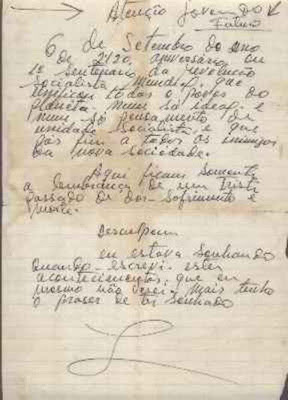 Atenção Jovem do
Futuro
6 de Setembro do ano
de 2120, aniversario ou
1º centenario da revolução
Socialista mundial, que
unificou todos os povos do
planeta num só ideal e
num só pensamento de
unidade socialista e que
pôs fim a todos os inimigos
da nova sociedade.
Aqui ficam somente
a lembrança de um triste
passado de dor sofrimento e
morte.
Desculpem
eu estava sonhando
quando escrevi estes
acontecimentos, que eu
mesmo não verei mais tenho
o praser de ter sonhado